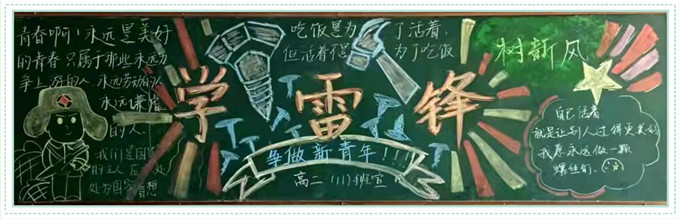 青春啊!永远是美好
的青春只属于那些永远力
争上游的人永远劳动的人
永远谦虚
的人!
我们是国家
的主人应该处
处为国家着想
吃饭是为了活着,
但活着不是为了吃饭
树新风
学雷锋
争做新青年!!!
高二(11)班宣
自己活着
就是让别人过得更美好
我愿永远做一颗
螺丝钉.